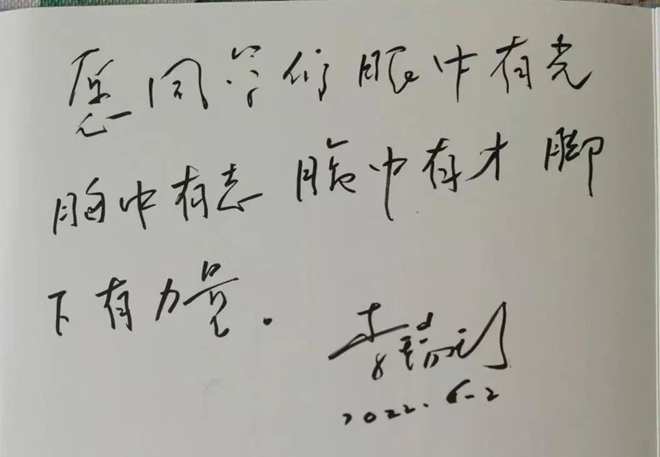 愿同学们眼中有光
胸中有志 腹中有才 脚
下有力量.
李瑞
2022.6-2